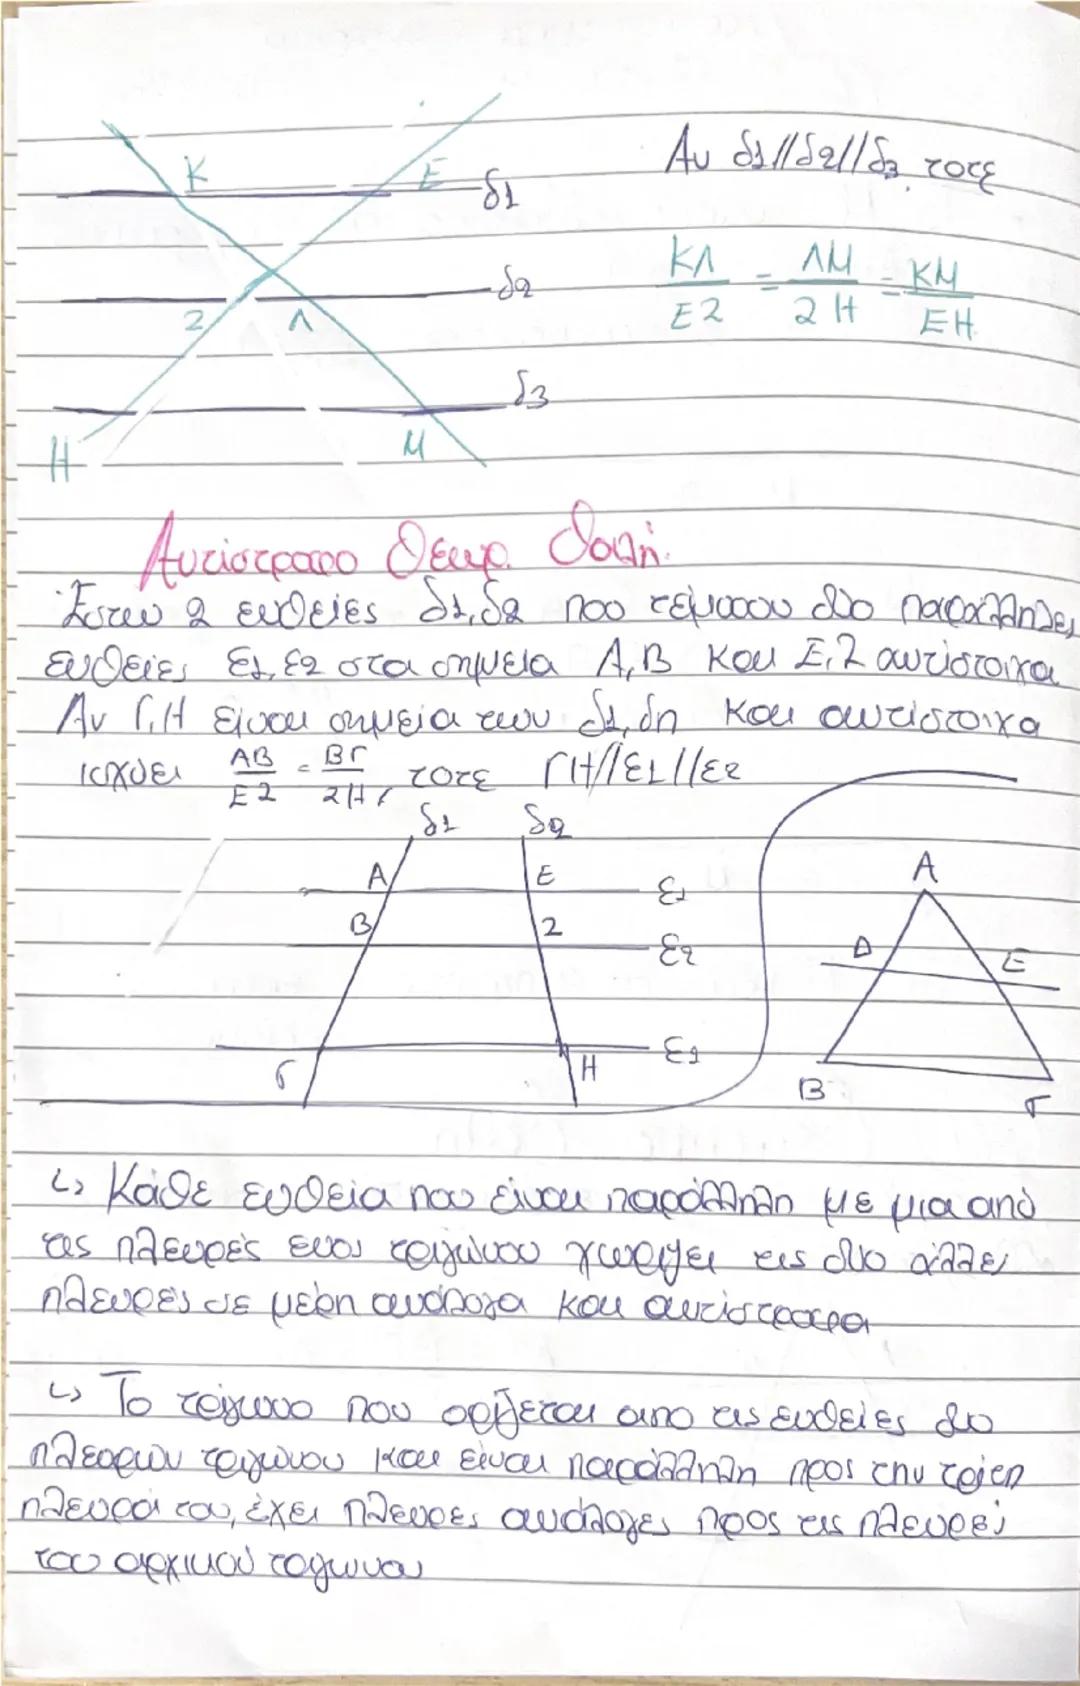 Κ Ε δ1
Αν δ1//δ2//δ3, τοτε
δ2
Ζ Λ
ΚΛ/ΕΖ = ΛΜ/ΖΗ = ΚΜ/ΕΗ
δ3
Η Μ
Αντίστροφο Θεωρ. Θαλή.
Έστω 2 ευθείες δ1, δ2 που τέμνουν δύο παράλληλες
ευθείες ε1, ε2 στα σημεία Α, Β και Ε, Ζ αντίστοιχα
Αν Γ, Η είναι σημεία των δ1, δη και αντίστοιχα
ισχύει ΑΒ/ΕΖ = ΒΓ/ΖΗ, τοτε ΓΗ//ε1//ε2
δ1 δ2
Α Ε ε1
Β Ζ ε2
Γ Η
Α
Δ Ε
Β Γ
↳ Κάθε ευθεία που είναι παράλληλη με μια από
τις πλευρές ενος τριγώνου χωρίζει τις δύο άλλες
πλευρές σε μέρη ανάλογα και αντίστροφα
↳ Το τρίγωνο που ορίζεται απο τις ευθείες δύο
πλευρών τριγώνου και είναι παράλληλη προς την τρίτη
πλευρά του, έχει πλευρές ανάλογες προς τις πλευρές
του αρχικού τριγώνου